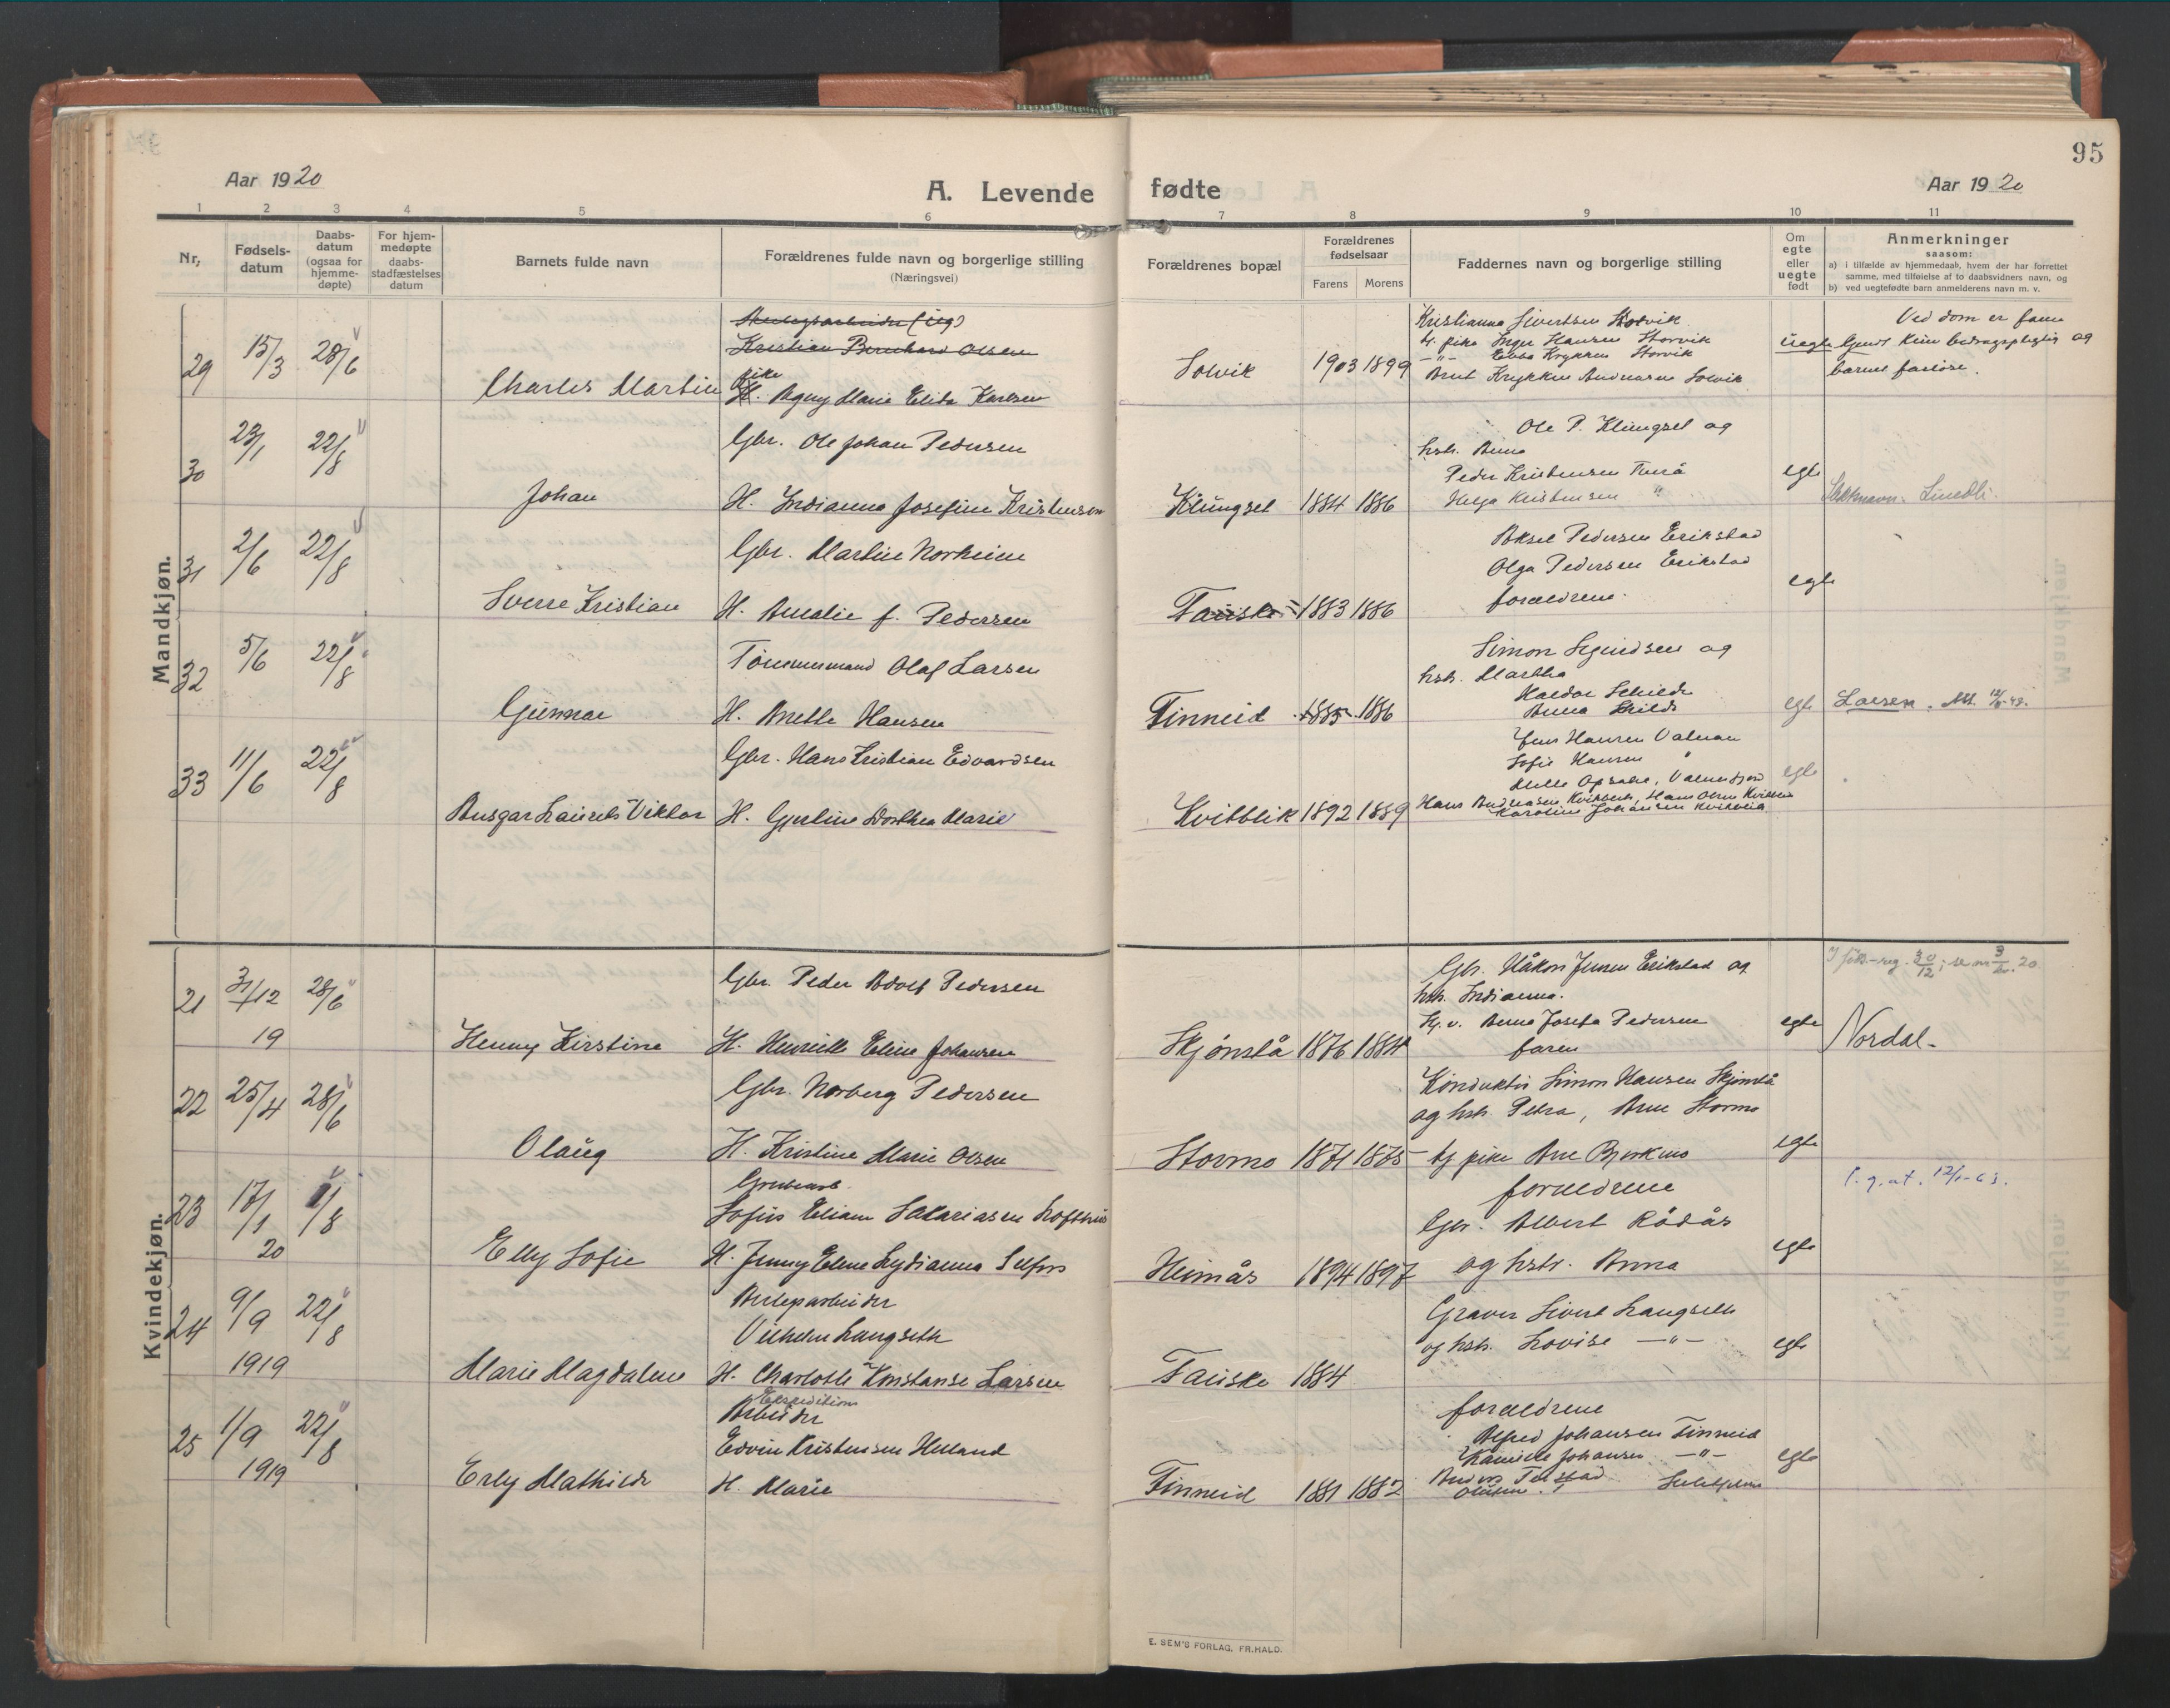 95
Aar 1920
A. Levende fødte
Aar 1920
1 2 3 4 5 6 7 8 9 10 11
Nr,
Fødsels-
datum
Daabs-
datum
(ogsaa for
hjemme-
døpte)
For hjem-
medøpte
daabs-
stadfæstelses
datum
Barnets fulde navn
Forældrenes fulde navn og borgerlige stilling
(Næringsvei)
Forældrenes bopæl
Forældrenes
fødselsaar
Farens Morens
Faddernes navn og borgerlige stilling
Om
egte
eller
uegte
født
Anmerkninger
saasom:
a) i tilfælde av hjemmedaab, hvem der har forrettet
samme, med tilføielse af to daabsvidners navn, og
b) ved uegtefødte barn anmelderens navn m. v.
Mandkjøn.
29 15/3 28/6
Charles Martin
(ug)
Kristian Bernhard Olsen
pike
H. Agny Marie Elida Karlsen
Solvik 1903 1899
Kristianna Sivertsen Storvik
pike Inger Hansen Storvik
Ebba Krykken Storvik
Krykken Andreasen Solvik
uegte
Ved dom er faren
kun bidragspligtig og
barnet farløse.
30 23/1 22/8
Johan
Gbr. Ole Johan Pedersen
H. Indianna Josefine Kristensen
Klungset 1884 1886
Ole P. Klungset og
hstr. Anna
Peder Kristensen
Helga Kristensen "
egte
31 2/6 22/8
Sverre Kristian
Gbr. Martin Norheim
H. Amalie f. Pedersen
Fauske 1883 1886
Aksel Pedersen Erikstad
Olga Pedersen Erikstad
forældrene.
egte
32 5/6 22/8
Gunnar
Tømmermand Olaf Larsen
H. Anette Hansen
Finneid 1885 1886
Simon Sigurdsen og
hstr. Martha
egte
Larsen.
33 11/6 22/8
Ansgar Laurits Viktor
Gbr. Hans Kristian Edvardsen
H. Gjertine Dorthea Marie
Kvitblik 1892 1889
Jens Hansen
Sofie Hansen "
Hans Andreasen Kvitblik, Hans Olsen Kvitblik
Karoline Johansen Kvitblik
egte
Kvindekjøn.
21 31/12 28/6
19
Henny Kirstine
Gbr. Peder Adolf Pedersen
H. Henriette Eline Johansen
Skjønstå 1876 1884
Gbr. Håkon Jensen Erikstad og
hstr. Indianna.
Anna Josefa Pedersen
faren
egte
30/12 3/20. 20
Nordal-
22 25/4 28/6
Olaug
Gbr. Norberg Pedersen
H. Kristine Marie Olsen
Stormo 1871 1875
Konduktør Simon Hansen Skjønstå
og hstr. Petra, Arne Stormo
pike Bjørkmo
egte
23 17/1 1/8
20
Elly Sofie
Sofus Eliam Sakariasen Lofthus
H. Jenny Elene Lydianna Selfors
Heimås 1894 1897
forældrene
Gbr. Albert Rødås
og hstr. Anna
egte
12/1-63.
24 9/9 22/8
1919
Marie Magdalene
Vilhelm Langseth
H. Charlotte Konstanse Larsen
Fauske 1884
Graver Sivert Langseth
og hstr. Lovise —"—
egte
25 1/9 22/8
1919
Erly Mathilde
Ekspeditions
Arbeider
Edvin Kristensen Helland
H. Marie
Finneid 1881 1882
forældrene
Alfred Johansen Finneid
Johansen —"—
Sulitjelma
egte
E. SEM'S FORLAG, FR.HALD.